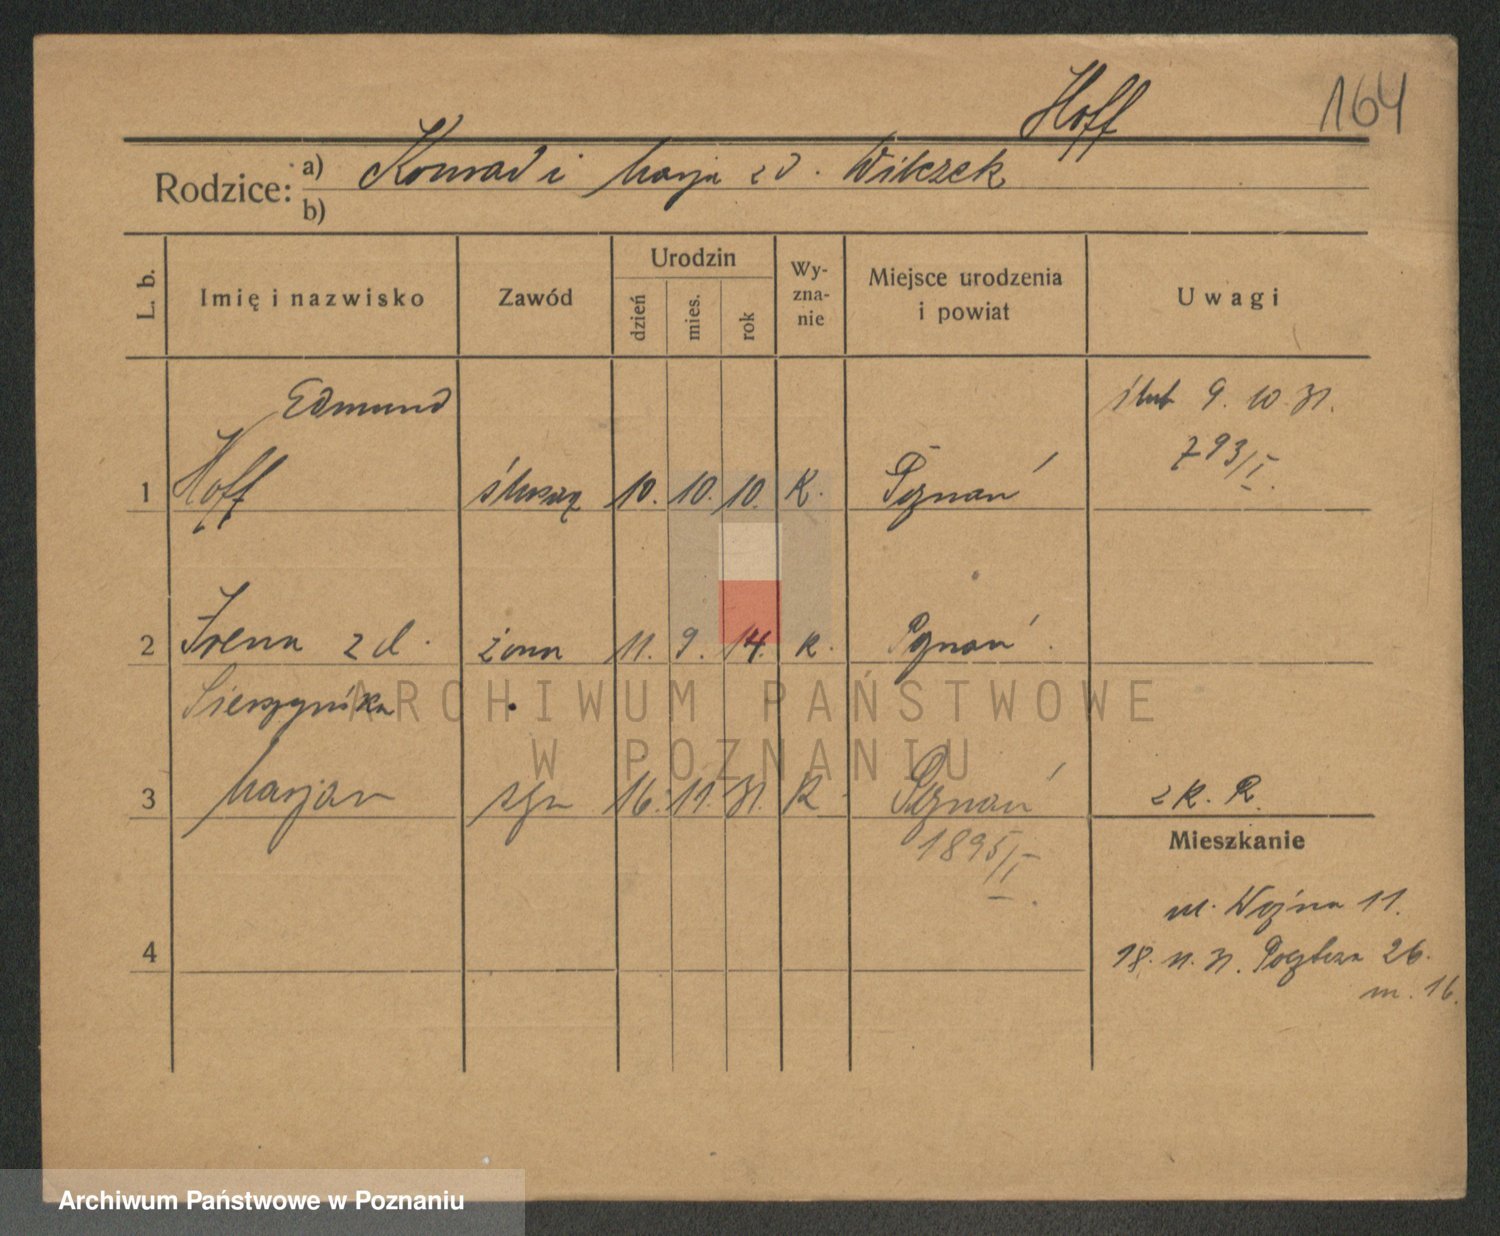 Hoff
164
Rodzice: a) Konrad i Marja zd. Wilczek
b)
L. b. Imię i nazwisko Zawód Urodzin dzień mies. rok Wy-zna-nie Miejsce urodzenia i powiat Uwagi
Edmund ślub 9. 10. 31.
793/I.
1 Hoff 10. 10. 10. K. Poznań
2 Irena zd. żona 11. 9. 14. K. Poznań.
3 Marjan syn 16. 11. 31. K Poznań z k. R.
1895/I
Mieszkanie
ul. 11.
4 18. 11. 31. 26.
m. 16.
ARCHIWUM PAŃSTWOWE
W POZNANIU
Archiwum Państwowe w Poznaniu